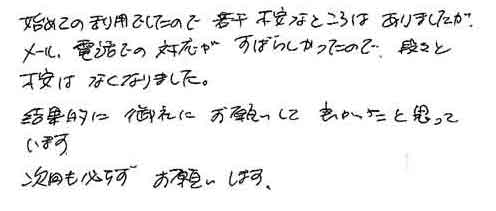 始めての利用でしたので 若干 不安なところは ありましたが、
メール、電話での 対応が すばらしかったので、段々と
不安は なくなりました。
結果的に 御社に お願いして 良かったと思って
います
次回も必ず お願いします。